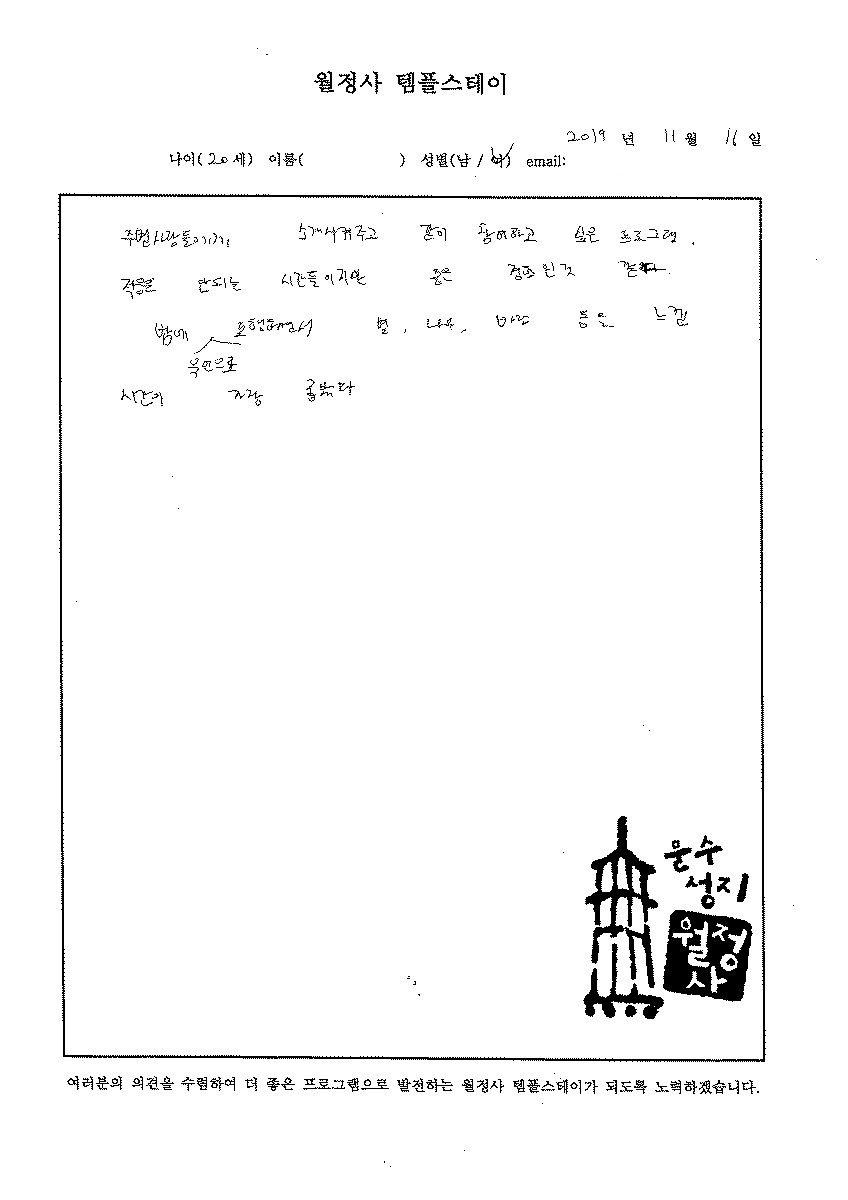 월정사 템플스테이
2019 년 11 월 16 일
나이(20세) 이름( ) 성별(남/여) email:
주변사람들에게 소개시켜주고 같이 참여하고 싶은 프로그램.
적응 안되는 시간들이지만 좋은 경험인것 같다.
밤에 포행하면서 별, 나무, 바람 등을 느낀
묵언으로
시간이 가장 좋았다
문수
성지
월정
사
여러분의 의견을 수렴하여 더 좋은 프로그램으로 발전하는 월정사 템플스테이가 되도록 노력하겠습니다.